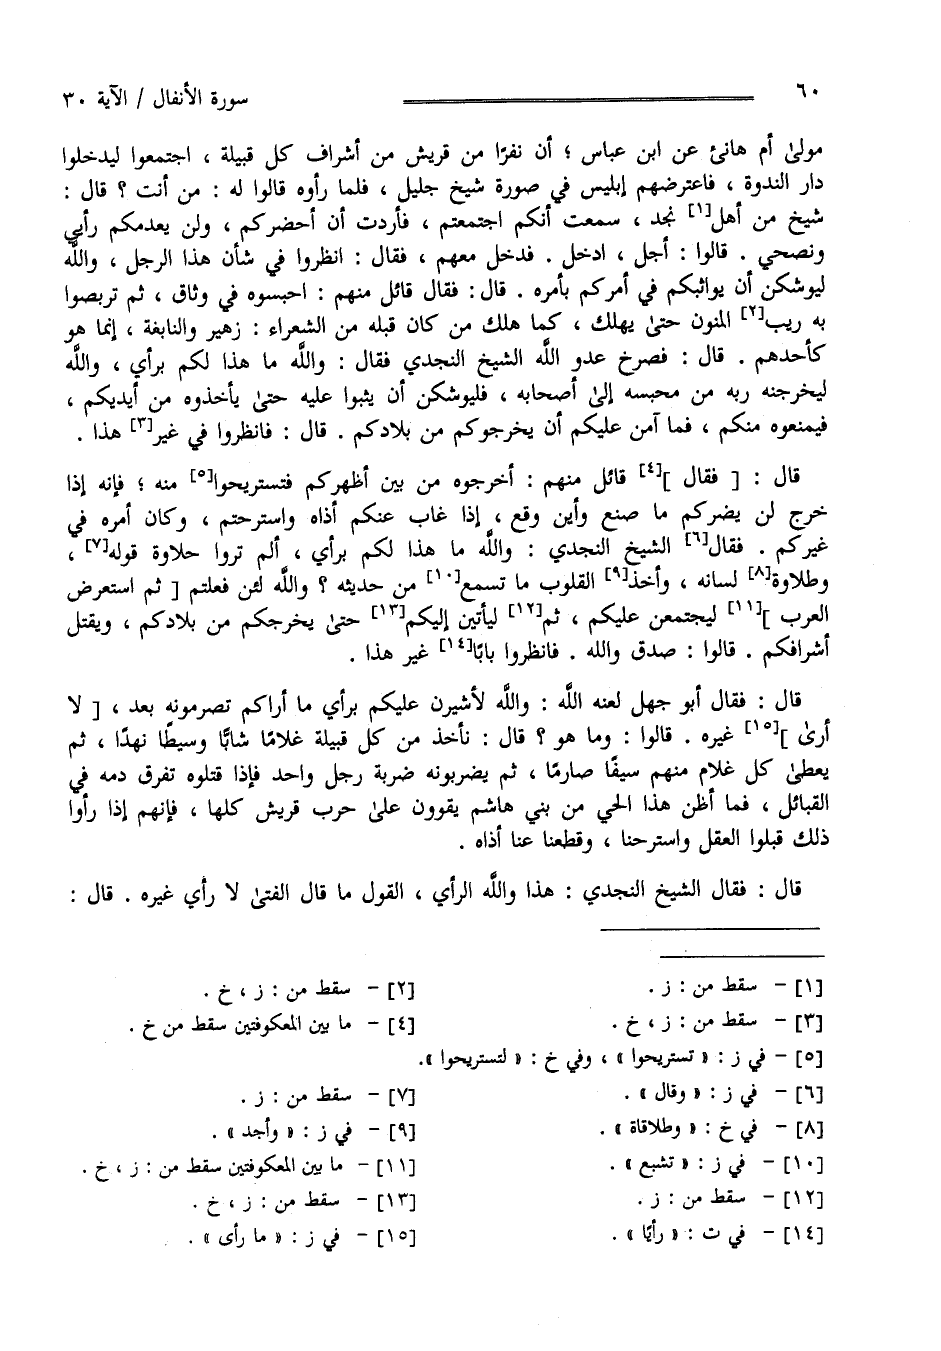 ٦٠ سورة الأنفال / الآية ٣٠
مولىٰ أم هانئ عن ابن عباس ؛ أن نفرًا من قريش من أشراف كل قبيلة ، اجتمعوا ليدخلوا
دار الندوة ، فاعترضهم إبليس في صورة شيخ جليل ، فلما رأوه قالوا له : من أنت ؟ قال :
شيخ من أهل[١] نجد ، سمعت أنكم اجتمعتم ، فأردت أن أحضركم ، ولن يعدمكم رأيي
ونصحي . قالوا : أجل ، ادخل . فدخل معهم ، فقال : انظروا في شأن هذا الرجل ، واللَّه
ليوشكن أن يواثبكم في أمركم بأمره . قال : فقال قائل منهم : احبسوه في وثاق ، ثم تربصوا
به ريب[٢] المنون حتىٰ يهلك ، كما هلك من كان قبله من الشعراء : زهير والنابغة ، إنما هو
كأحدهم . قال : فصرخ عدو اللَّه الشيخ النجدي فقال : واللَّه ما هذا لكم برأي ، واللَّه
ليخرجنه ربه من محبسه إلىٰ أصحابه ، فليوشكن أن يثبوا عليه حتىٰ يأخذوه من أيديكم ،
فيمنعوه منكم ، فما آمن عليكم أن يخرجوكم من بلادكم . قال : فانظروا في غير[٣] هذا .
قال : [ فقال ][٤] قائل منهم : أخرجوه من بين أظهركم فتستريحوا[٥] منه ؛ فإنه إذا
خرج لن يضركم ما صنع وأين وقع ، إذا غاب عنكم أذاه واسترحتم ، وكان أمره في
غيركم . فقال[٦] الشيخ النجدي : واللَّه ما هذا لكم برأي ، ألم تروا حلاوة قوله[٧] ،
وطلاوة[٨] لسانه ، وأخذ[٩] القلوب ما تسمع[١٠] من حديثه ؟ واللَّه لئن فعلتم [ ثم استعرض
العرب ][١١] ليجتمعن عليكم ، ثم[١٢] ليأتين إليكم[١٣] حتىٰ يخرجكم من بلادكم ، ويقتل
أشرافكم . قالوا : صدق والله . فانظروا بابًا[١٤] غير هذا .
قال : فقال أبو جهل لعنه اللَّه : واللَّه لأشيرن عليكم برأي ما أراكم تصرمونه بعد ، [ لا
أرىٰ ][١٥] غيره . قالوا : وما هو ؟ قال : نأخذ من كل قبيلة غلامًا شابًّا وسيطًا نهدًا ، ثم
يعطىٰ كل غلام منهم سيفًا صارمًا ، ثم يضربونه ضربة رجل واحد فإذا قتلوه تفرق دمه في
القبائل ، فما أظن هذا الحي من بني هاشم يقوون علىٰ حرب قريش كلها ، فإنهم إذا رأوا
ذلك قبلوا العقل واسترحنا ، وقطعنا عنا أذاه .
قال : فقال الشيخ النجدي : هذا واللَّه الرأي ، القول ما قال الفتىٰ لا رأي غيره . قال :
[١] – سقط من : ز . [٢] – سقط من : ز ، خ .
[٣] – سقط من : ز ، خ . [٤] – ما بين المعكوفتين سقط من خ .
[٥] – في ز : « تستريحوا » ، وفي خ : « لتستريحوا ».
[٦] – في ز : « وقال » . [٧] – سقط من : ز .
[٨] – في خ : « وطلاقاة » . [٩] – في ز : « وأجد » .
[١٠] – في ز : « تشبع » . [١١] – ما بين المعكوفتين سقط من : ز ، خ .
[١٢] – سقط من : ز . [١٣] – سقط من : ز ، خ .
[١٤] – في ت : « رأيًا » . [١٥] – في ز : « ما رأى » .